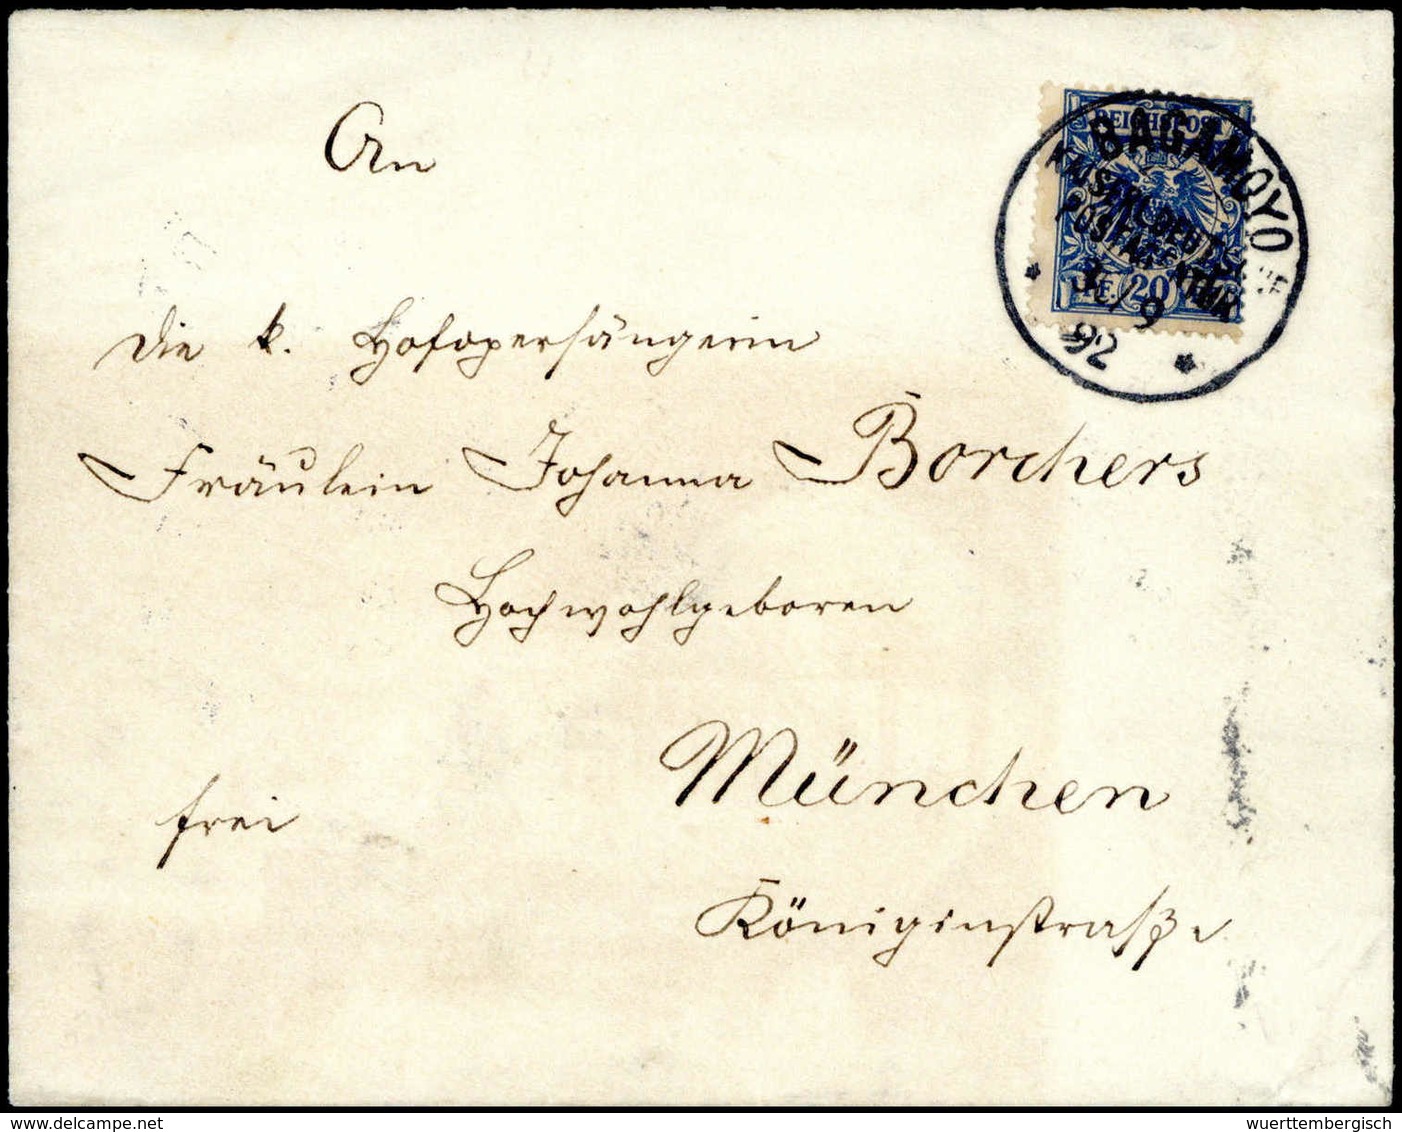 An
die k. Hofopersängerin
Fräulein Johanna Borchers
Hochwohlgeboren
München
frei
Königinstraße
REICHSPOST
20
BAGAMOYO
KAISERL. DEUTSCHE
POSTAGENTUR
/9
92
www.delcampe.net
wuerttembergisch